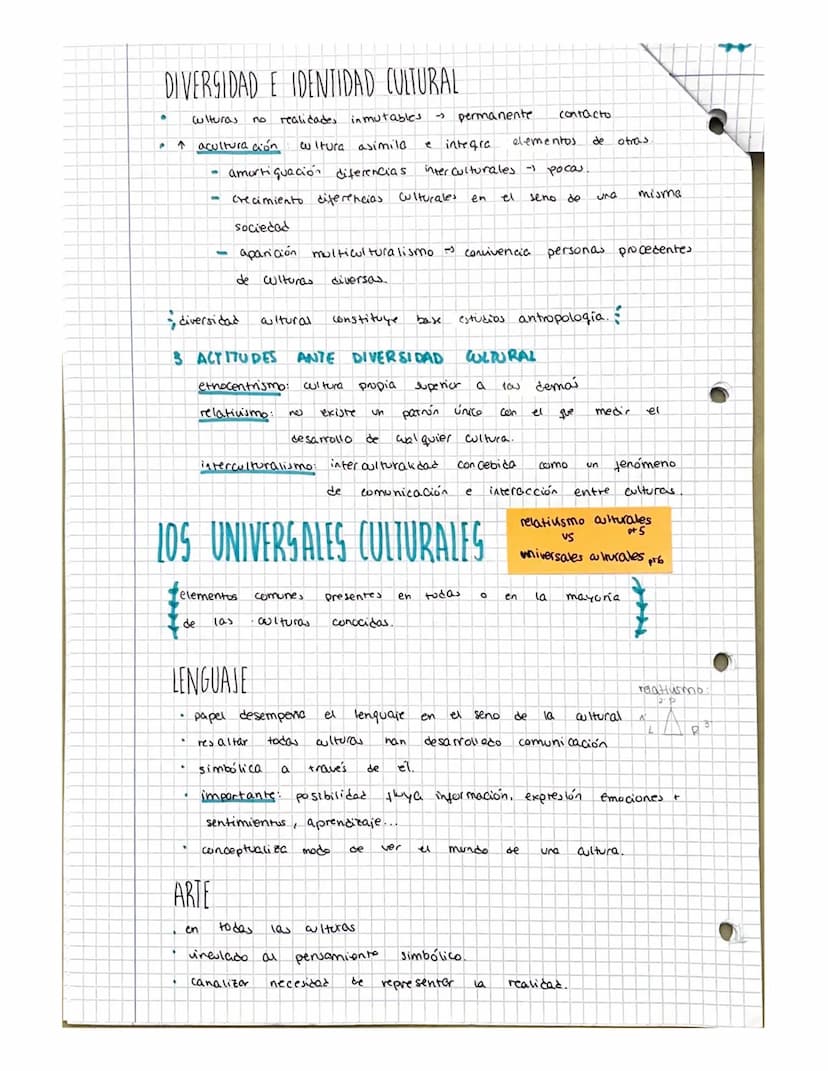 DIVERSIDAD E IDENTIDAD CULTURAL
• culturas no realidades inmutables → permanente contacto
• ↑ aculturación cultura asimila e integra elementos de otras.
- amortiguación diferencias interculturales → pocas.
- crecimiento diferencias culturales en el seno de una misma
sociedad
- aparición multiculturalismo => convivencia personas procedentes
de culturas diversas.
diversidad culturas constituye base estudios antropología.
3 ACTITUDES ANTE DIVERSIDAD CULTURAL
etnocentrismo: cultura propia superior a las demás
relativismo: no existe un patrón único con el que medir el
desarrollo de cualquier cultura.
interculturalismo: interculturalidad concebida como un fenómeno
de comunicación e interacción entre culturas.
relativismo culturales
pt 5
vs
universales culturales pt 6
LOS UNIVERSALES CULTURALES
elementos comunes presentes en todas o en la mayoría
de las culturas conocidas.
LENGUAJE
relativismo:
• papel desempeña el lenguaje en el seno de la cultural
• resaltar todas culturas han desarrollado comunicación
• simbólica a través de él.
• importante: posibilidad fluya información, expresión emociones +
sentimientos, aprendizaje...
• conceptualiza modo de ver el mundo de una cultura.
ARTE
• en todas las culturas
• vinculado al pensamiento simbólico.
• canalizar necesidad de representar la realidad.